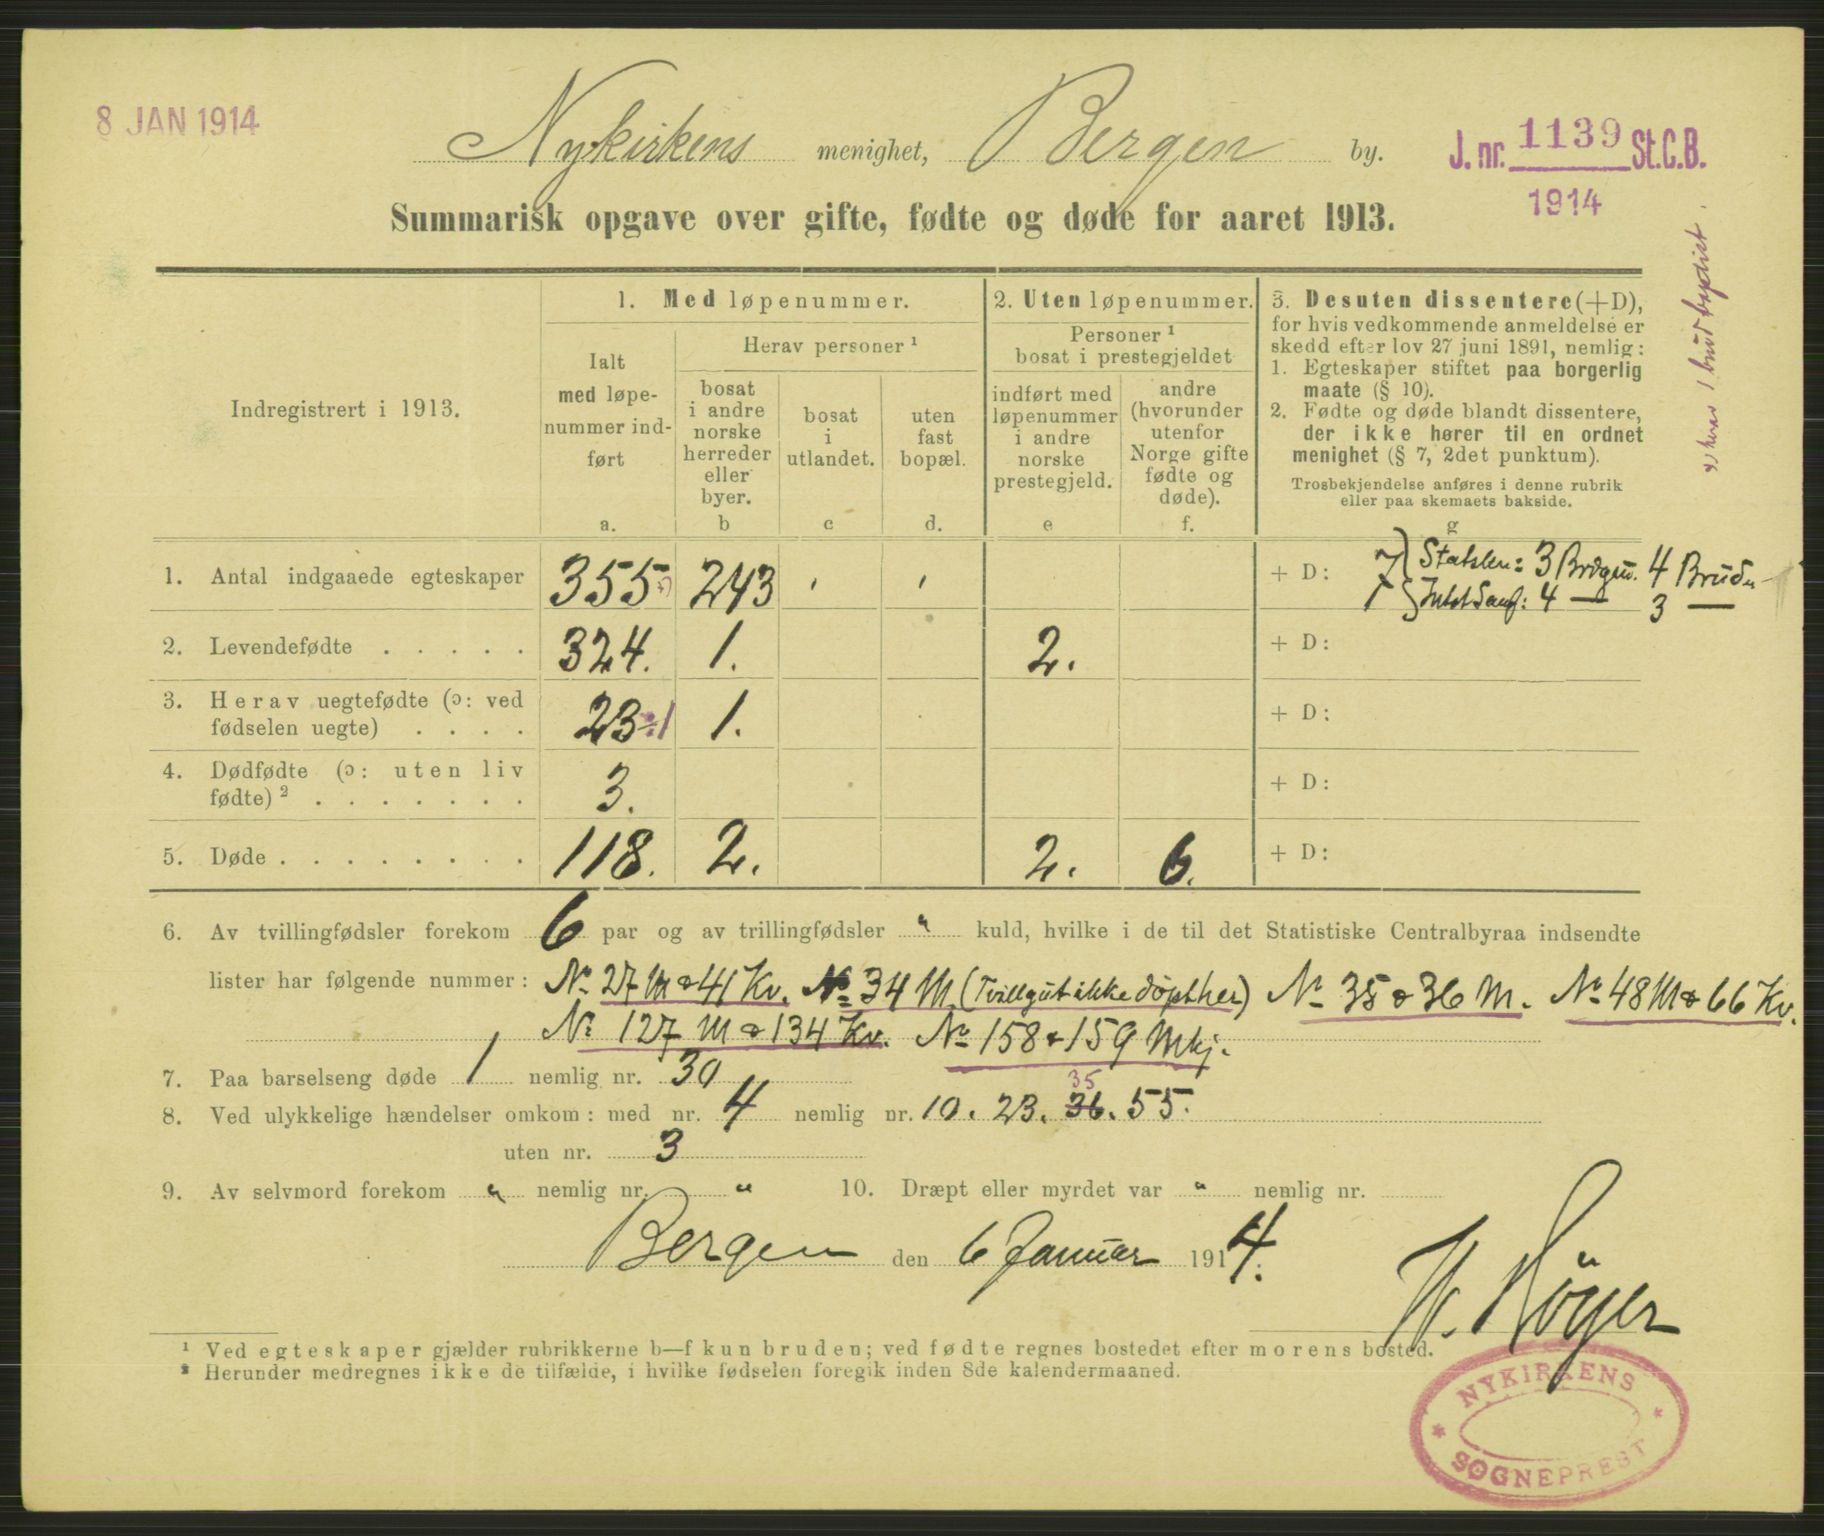 8 JAN 1914
Nykirkens menighet, Bergen by.
J. nr. 1139 St.C.B.
1914
Summarisk opgave over gifte, fødte og døde for aaret 1913.
Indregistrert i 1913.
1. Med løpenummer.
Ialt med løpe-nummer ind-ført
a.
Herav personer ¹
bosat i andre norske herreder eller byer.
b
bosat i utlandet.
c
uten fast bopæl.
d.
2. Uten løpenummer.
Personer ¹ bosat i prestegjeldet
indført med løpenummer i andre norske prestegjeld.
e
andre (hvorunder utenfor Norge gifte fødte og døde).
f.
3. Desuten dissentere (+D),
for hvis vedkommende anmeldelse er
skedd efter lov 27 juni 1891, nemlig:
1. Egteskaper stiftet paa borgerlig
maate (§ 10).
2. Fødte og døde blandt dissentere,
der ikke hører til en ordnet
menighet (§ 7, 2det punktum).
Trosbekjendelse anføres i denne rubrik
eller paa skemaets bakside.
g
1. Antal indgaaede egteskaper 355 243 + D: 7 Statslen: 3 4
4 — 3 —
2. Levendefødte . . . . . 324. 1. 2. + D:
3. Herav uegtefødte (ɔ: ved
fødselen uegte) . . . . 23 ÷1 1. + D:
4. Dødfødte (ɔ: uten liv
fødte) ² . . . . . . . 3. + D:
5. Døde . . . . . . . . 118. 2. 2. 6. + D:
6. Av tvillingfødsler forekom 6 par og av trillingfødsler " kuld, hvilke i de til det Statistiske Centralbyraa indsendte
lister har følgende nummer: No 27 M & 41 Kv. No 34 M (Tvillgut ikke døpt her) No 35 & 36 M. No 48 M & 66 Kv.
No 127 M & 134 Kv. No 158 & 159 Mkj.
7. Paa barselseng døde 1 nemlig nr. 30
8. Ved ulykkelige hændelser omkom: med nr. 4 nemlig nr. 10. 23. 36. 35 55.
uten nr. 3
9. Av selvmord forekom " nemlig nr. " 10. Dræpt eller myrdet var " nemlig nr.
Bergen den 6 Januar 1914.
¹ Ved egteskaper gjælder rubrikkerne b—f kun bruden; ved fødte regnes bostedet efter morens bosted.
² Herunder medregnes ikke de tilfælde, i hvilke fødselen foregik inden 8de kalendermaaned.
NYKIRKENS
SOGNEPREST